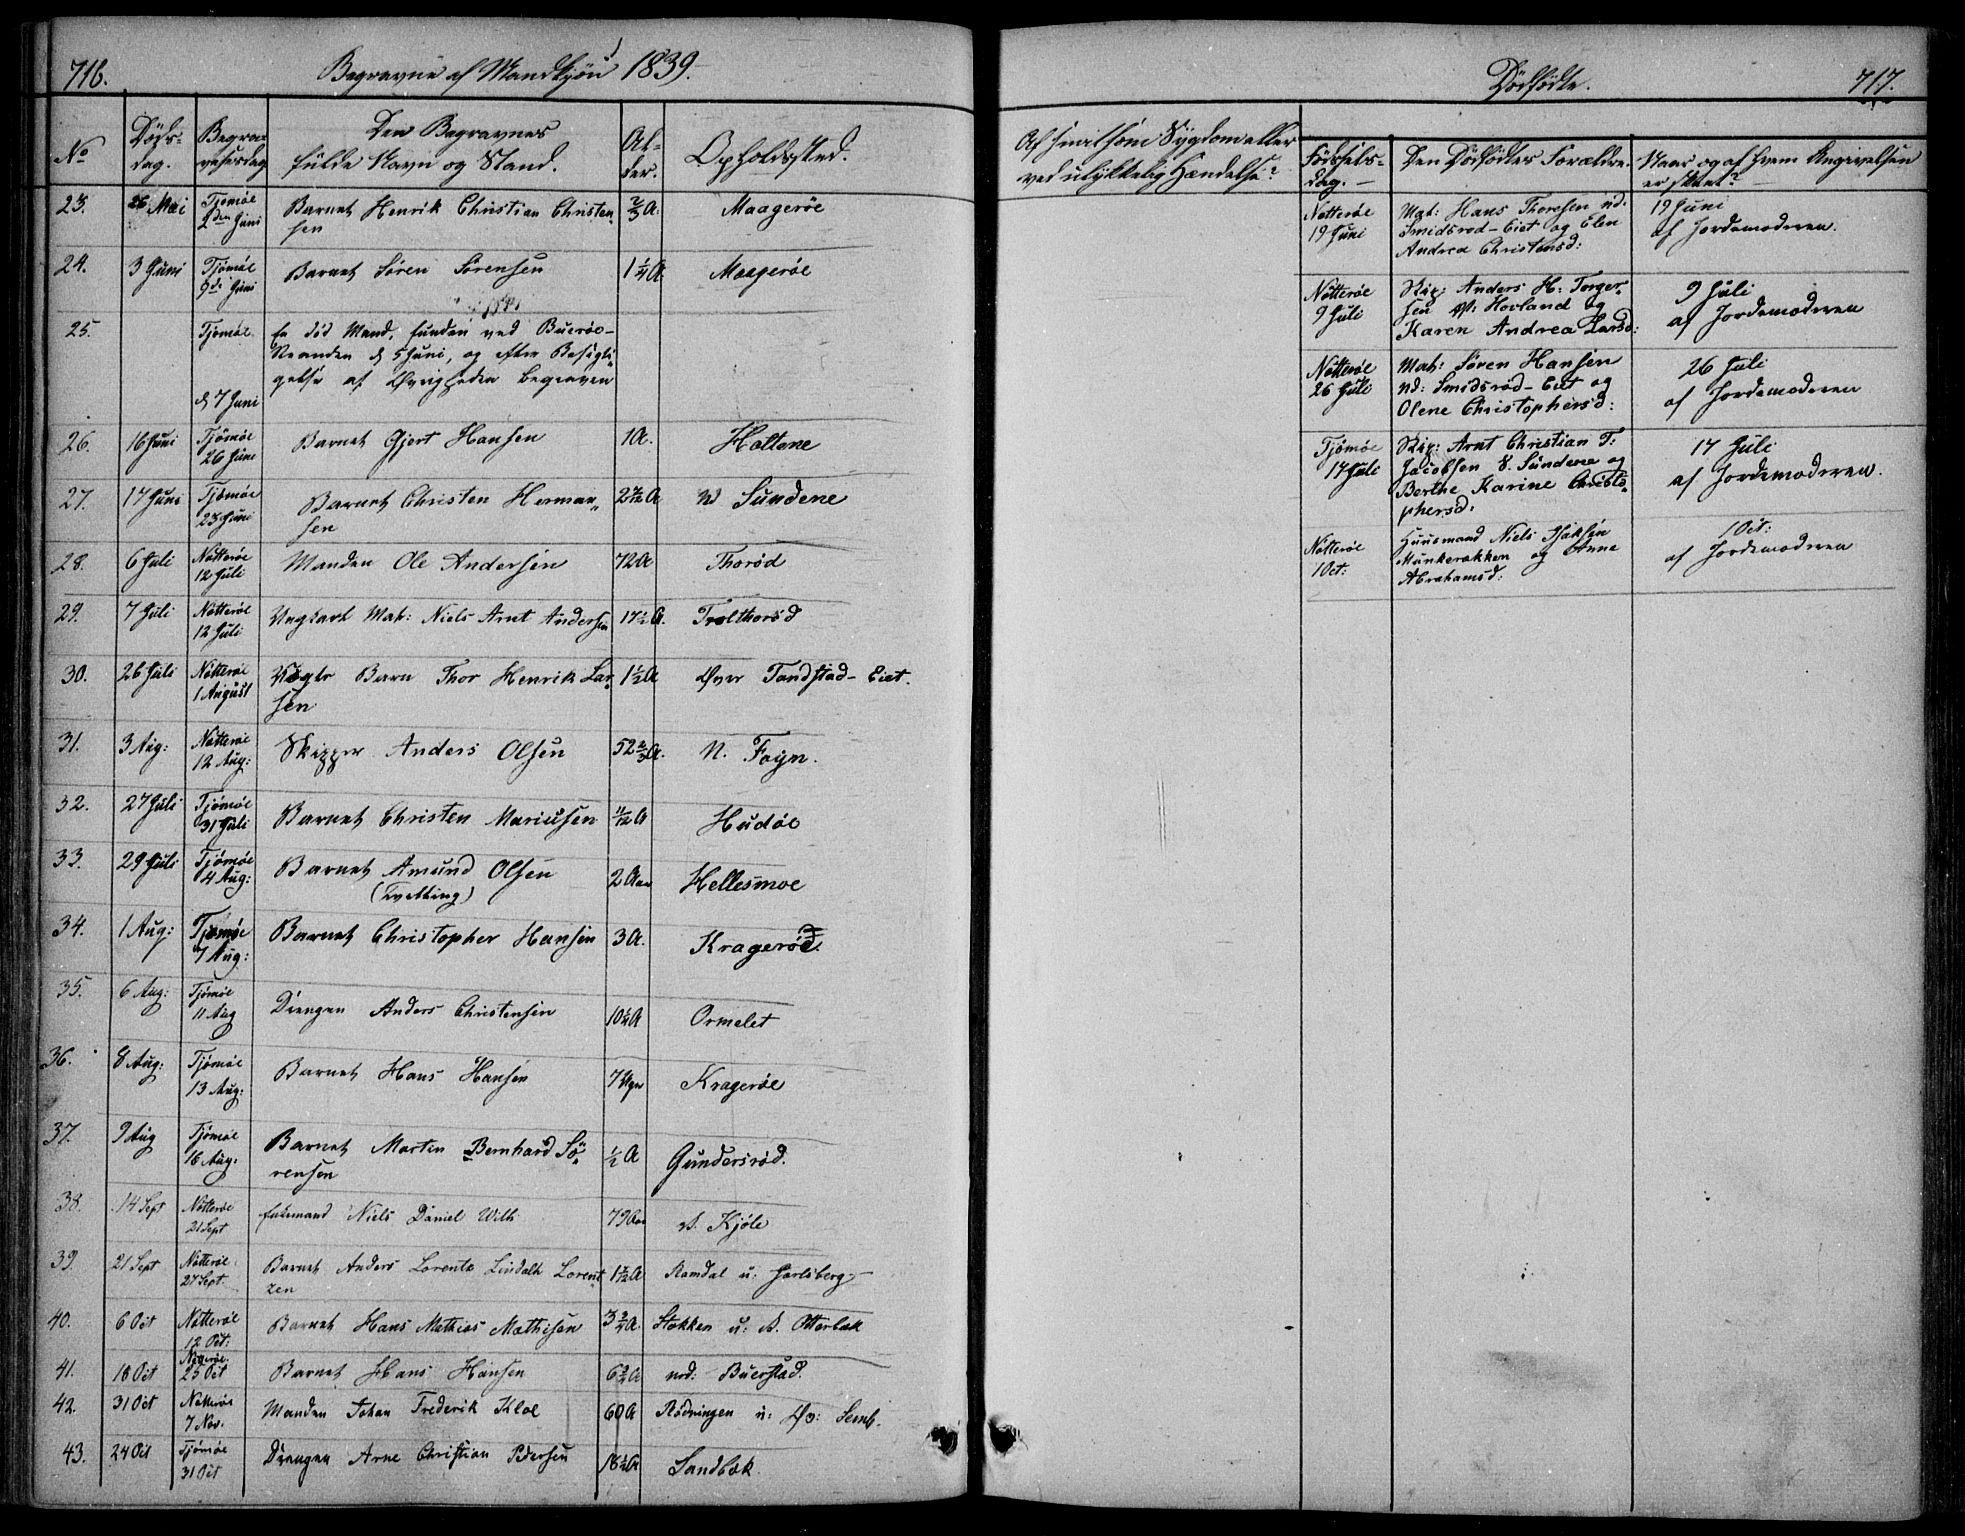 716.
Begravne af Mandkjøn 1839.
No
Døds-
dag.
Begra-
velsesdag
Den Begravnes
fulde Navn og Stand.
Al-
der.
Opholdssted.
23. 26 Mai Tjømøe Barnet Henrik Christian Christen- 2/3 A. Maagerøe
2den Juni sen
24. 3 Juni Tjømøe Barnet Søren Sørensen 1 1/4 A. Maagerøe
9de Juni
25. Tjømøe En død Mand, funden ved Buerøe-
Stranden d 5 Juni, og efter Besigti-
gelse af Øvrigheden begraven
d 7 Juni
26. 16 Juni Tjømøe Barnet Gjert Hansen 1 A. Hottene
26 Juni
27. 17 Juni Tjømøe Barnet Christen Herman- 2 7/12 A Sundene
23 Juni sen
28. 6 Juli Nøtterøe Manden Ole Andersen 72 A Thorød
12 Juli
29. 7 Juli Nøtterøe Ungkarl Mat: Niels Arnt Andersen 17 1/2 A. Trolthorsd
12 Juli
30. 26 Juli Nøtterøe Uægte Barn Thor Henrik Lar- 1 1/2 A Øvre Tandstad-Eiet.
1 August sen
31. 3 Aug: Nøtterøe Skipper Anders Olsen 52 2/3 A. N. Foyn.
12 Aug:
32. 27 Juli Tjømøe Barnet Christen Mariusen 11/12 A Hudøe
31 Juli
33. 29 Juli Tjømøe Barnet Amund Olsen 2 Aar Hellesmoe
4 Aug: (Tvilling)
34. 1 Aug: Tjømøe Barnet Christopher Hansen 3 A. Kragerøe.
7 Aug:
35. 6 Aug: Tjømøe Drengen Anders Christensen 10 1/4 A Ormelet
11 Aug
36. 8 Aug: Tjømøe Barnet Hans Hansen 7 Uger Kragerøe
13 Aug:
37. 9 Aug Tjømøe Barnet Martin Bernhard Sø- 1/2 A Gundersrød.
16 Aug: rensen
38. 14 Sept Nøtterøe Enkemand Niels Daniel With 79 Aar V. Kjøle
21 Sept
39. 21 Sept Nøtterøe Barnet Anders Lorentz Lindalh Lorent- 1 7/12 A Ramdal u: Jarlsberg
27 Sept. zen
40. 6 Oct Nøtterøe Barnet Hans Mathias Mathisen 3 3/4 A. Stokken u: V. Otterbek
12 Oct:
41. 18 Oct Nøtterøe Barnet Hans Hansen 6 3/4 A nod: Buerstad.
25 Oct
42. 31 Oct Nøtterøe Manden Johan Frederik Kloe 60 A Rødningen u: Øv: Semb.
7 Nov.
43. 24 Oct Tjømøe Drengen Arne Christian Pedersen 18 1/2 A Sandbæk.
31 Oct
717.
Dødfødte.
Af smitsom Sygdom eller
ved ulykkelig Hændelse?
Fødsels-
Dag.
Den Dødfødtes Forældre.
Naar og af hvem Angivelsen
er skeet?
Nøtterøe Mat: Hans Thoresen nd: 19 Juni
19 Juni Smidsrød-Eiet og Elen af Jordemoderen.
Andrea Christensd:
Nøtterøe Skip: Anders H: Torger- 9 Juli
9 Juli sen V: Hovland og af Jordemoderen
Karen Andrea Larsd:
Nøtterøe Mat: Søren Hansen 26 Juli
26 Juli nd: Smidsrød-Eiet og af Jordemoderen
Olene Christophersd:
Tjømøe Skip: Arnt Christian T: 17 Juli
17 Juli Jacobsen S. Sundene og af Jordemoderen.
Berthe Karine Christo-
phersd:
Nøtterøe Huusmand Niels Isaksen 1 Oct:
1 Oct: Munkerækken og Anne af Jordemoderen
Abrahamsd: